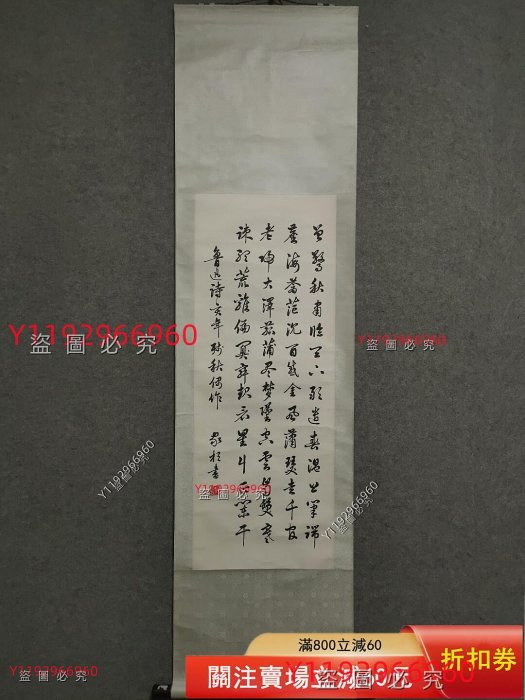 曾驚秋肅臨天下敢遣春温上筆端
塵海蒼茫沈百感金風蕭瑟走千官
老歸大澤菰蒲尽梦墜空雲齒髮寒
竦聽荒雞偏闃寂起看星斗正闌干
魯迅詩亥年残秋偶作
書
Y1192966960
盜圖必究
盜圖必究
Y1192966960
盜圖必究
Y1192966960
盜圖必究
Y1192966960
盜圖必究
Y1192966960
盜圖必究
Y1192966960
盜圖必究
滿800立減60
關注賣場立減60元
折扣券